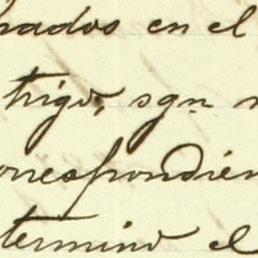 nados en el
trigo, sgn
orrespondien
termino el